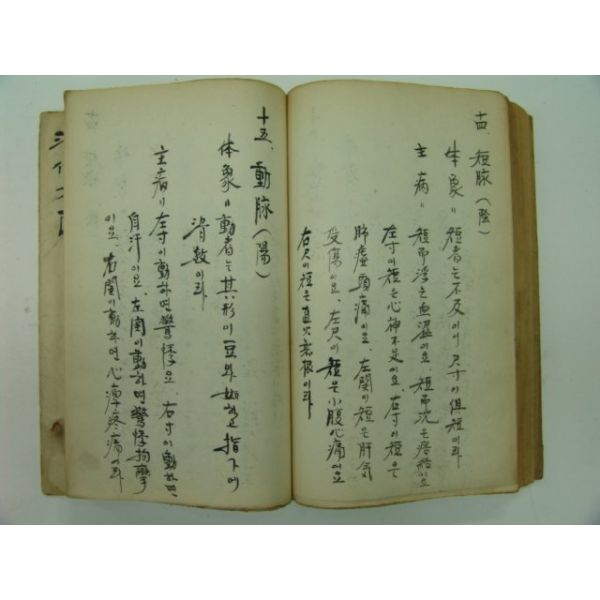 十四、短脉(陰)
体象〃 短者는 不及이이 尺寸이 俱短이라
主病〃 短而浮는 血澁이요 短而沈은 痞
左寸이 短은 心神不足이요、右寸이 短은
肺虛頭痛이요、左関이 短은 肝氣
受傷이요、左尺이 短은 小腹心痛이요
右尺이 短은 真火
十五、動脉(陽)
体象〃 動者는 其形이 豆와 如하고 指下에
滑数이라
主病〃 左寸이 動하면 驚悸요、右寸이 動하면
自汗이요、左関이 動하면 驚悸拘攣
이요、右関이 動하면 心脾疼痛이라